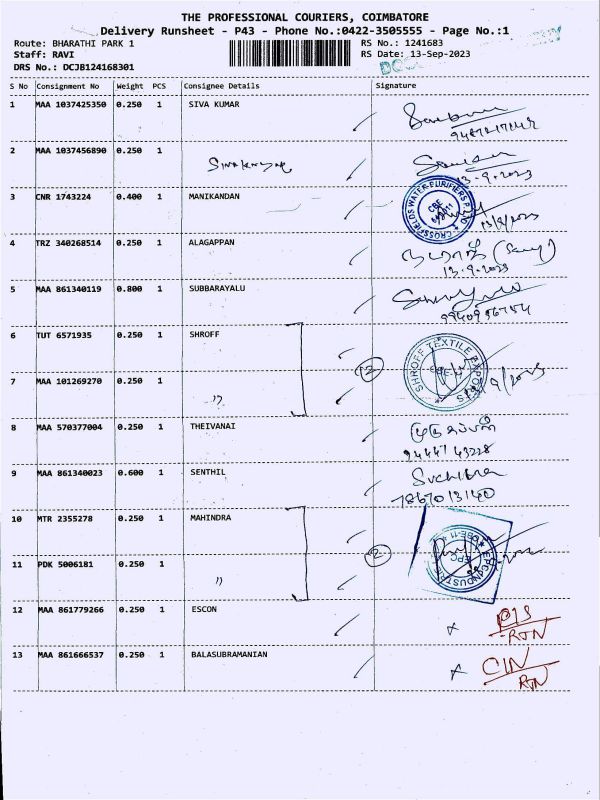 THE PROFESSIONAL COURIERS, COIMBATORE
Delivery Runsheet - P43 - Phone No.:0422-3505555 - Page No.:1
Route: BHARATHI PARK 1 RS No.: 1241683
Staff: RAVI RS Date: 13-Sep-2023
DRS No.: DCJB124168301
S No Consignment No Weight PCS Consignee Details Signature
1 MAA 1037425350 0.250 1 SIVA KUMAR
2 MAA 1037456890 0.250 1
13.9.2023
3 CNR 1743224 0.400 1 MANIKANDAN
CROSSFIELDS WATER PURIFIERS P LTD
CBE
13/9/2023
4 TRZ 340268514 0.250 1 ALAGAPPAN
13.9.2023
5 MAA 861340119 0.800 1 SUBBARAYALU
9940956754
6 TUT 6571935 0.250 1 SHROFF
2
SHROFF TEXTILE EXPORTS
7 MAA 101269270 0.250 1 "
8 MAA 570377004 0.250 1 THEIVANAI
9444743228
9 MAA 861340023 0.600 1 SENTHIL
Suchitra
7867013140
10 MTR 2355278 0.250 1 MAHINDRA
2
EPC
11 PDK 5006181 0.250 1 "
12 MAA 861779266 0.250 1 ESCON
x
RTN
13 MAA 861666537 0.250 1 BALASUBRAMANIAN
x CIN
RTN